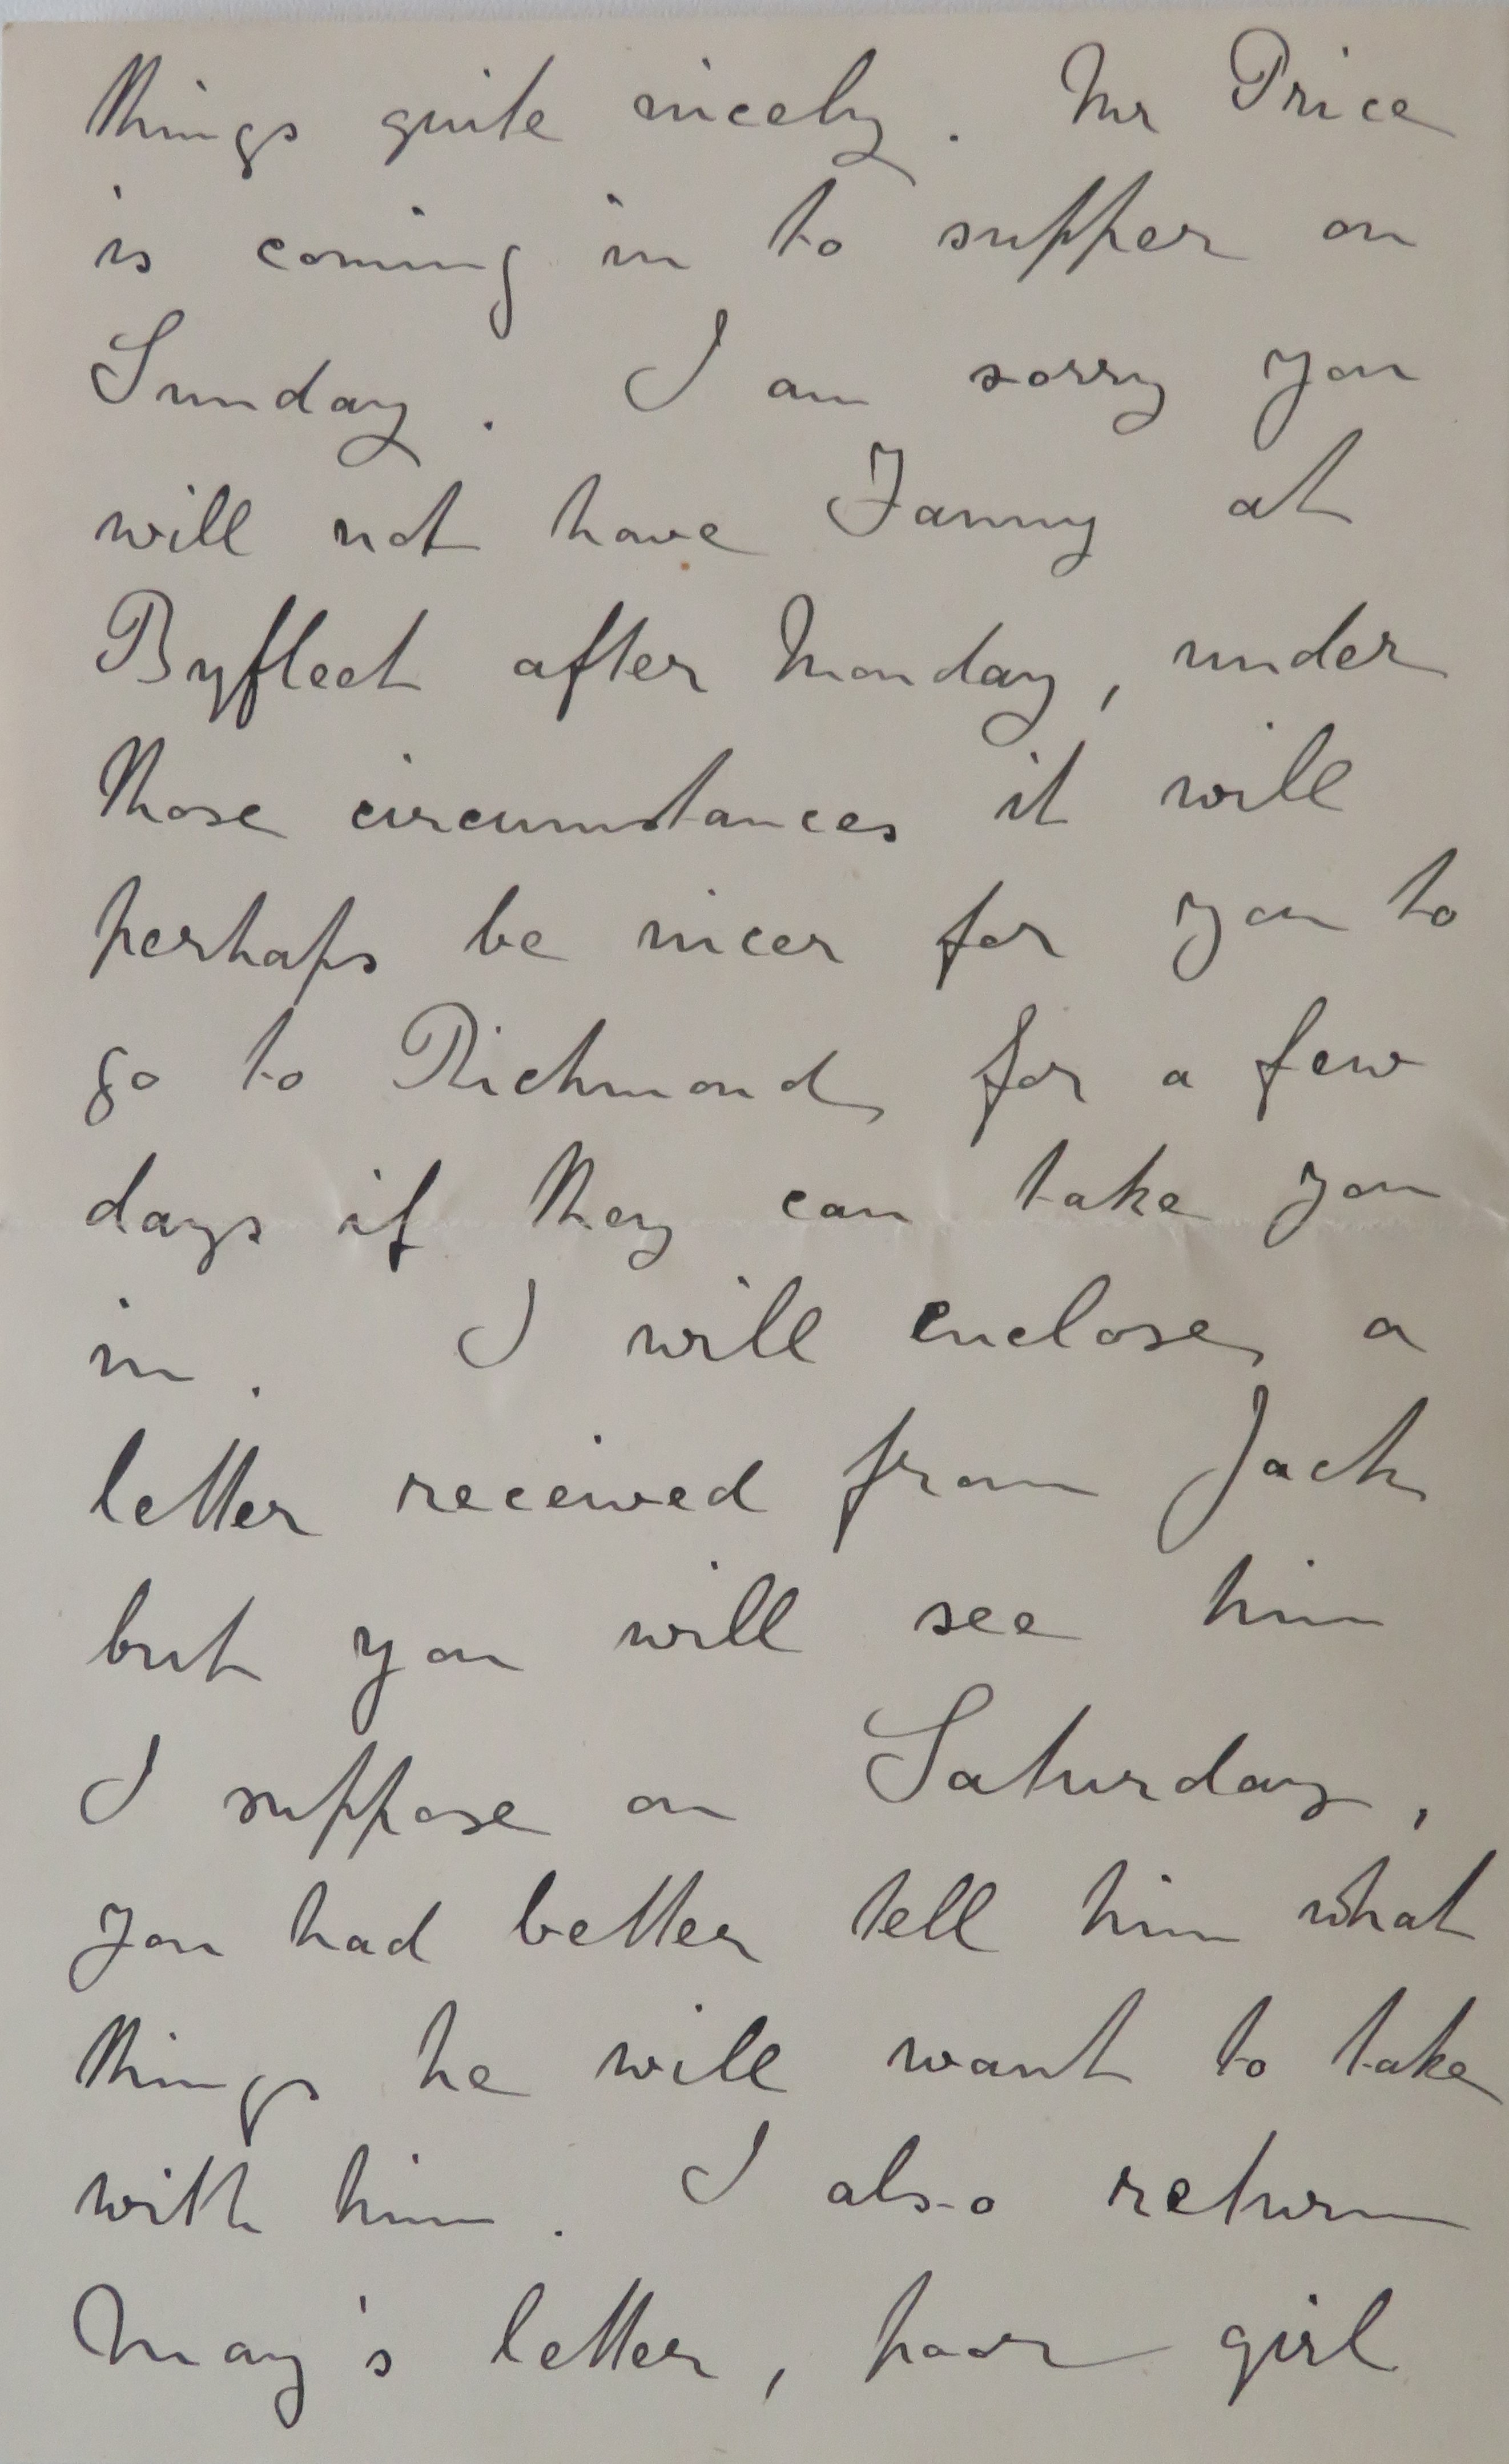 things quite nicely. Mr Price
is coming in to supper on
Sunday. I am sorry you
will not have Fanny at
Byfleet after Monday, under
those circumstances it will
perhaps be nicer for you to
go to Richmond for a few
days if they can take you
in. I will enclose a
letter received from Jack
but you will see him
I suppose on Saturday,
you had better tell him what
things he will want to take
with him. I also return
May's letter, poor girl